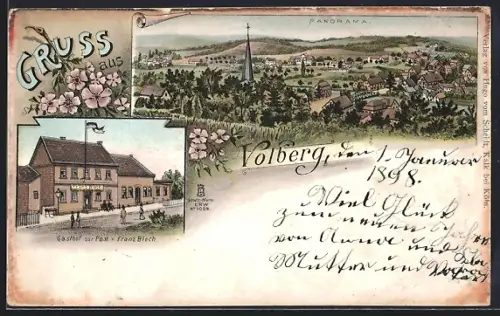 GRUSS
aus
PANORAMA.
Volberg, den 1. Januar
1898.
Viel Glück
zum neuen Jahre
von Anna und
Mutter und
Gasthof zur Post v. Franz Blech.
Verlag von Hugo vom Scheidt, Kalk bei Köln.